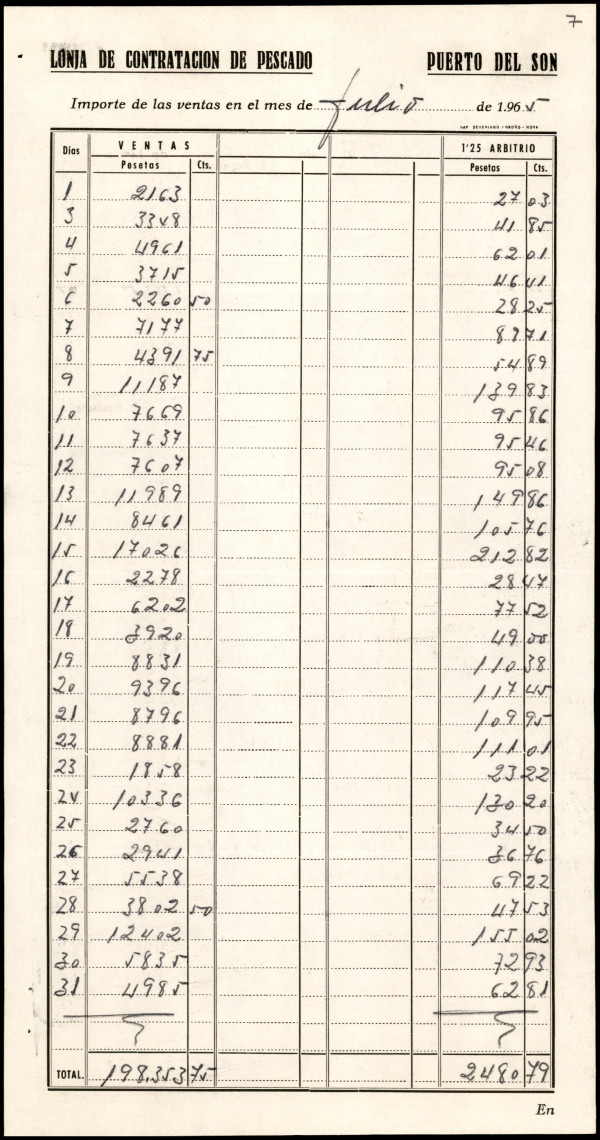 7
LONJA DE CONTRATACION DE PESCADO PUERTO DEL SON
Importe de las ventas en el mes de Julio de 1.965
IMP. SEVERIANO - OROÑO - NOYA
Días VENTAS 1'25 ARBITRIO
Pesetas Cts. Pesetas Cts.
1 2163 27 03
3 3348 41 85
4 4961 62 01
5 3715 46 41
6 2260 50 28 25
7 7177 89 71
8 4391 75 54 89
9 11187 139 83
10 7669 95 86
11 7637 95 46
12 7607 95 08
13 11989 149 86
14 8461 105 76
15 17026 212 82
16 2278 28 47
17 6202 77 52
18 3920 49 00
19 8831 110 38
20 9396 117 45
21 8796 109 95
22 8881 111 01
23 1858 23 22
24 10336 130 20
25 2760 34 50
26 2941 36 76
27 5538 69 22
28 3802 50 47 53
29 12402 155 02
30 5835 72 93
31 4985 62 81
TOTAL. 198,353 75 2480 79
En